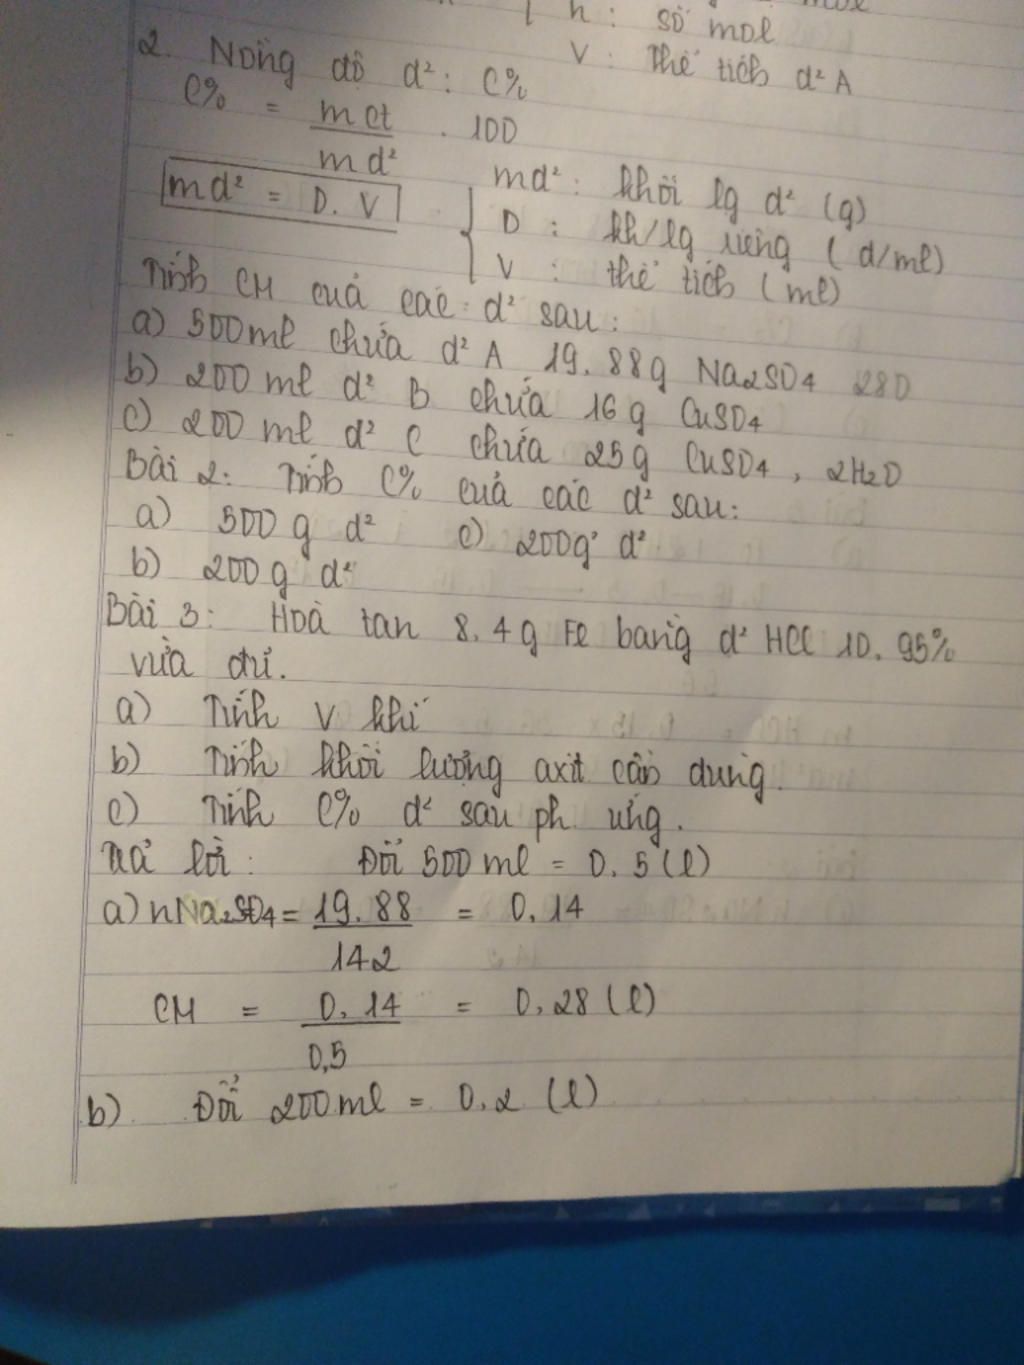 n : số mol
V : Thể tích d² A
2. Nồng độ d² : C%
C% = mct / md² . 100
md² = D. V
md² : khối lg d² (g)
D : kh/lg riêng ( d/ml)
V : thể tích ( ml)
Tính CM của các d² sau :
a) 500ml chứa d² A 19.88g Na2SO4 280
b) 200 ml d² B chứa 16 g CuSO4
c) 200 ml d² C chứa 25g CuSO4 , 2H2O
Bài 2: Tính C% của các d² sau:
a) 500 g d² c) 200g d²
b) 200 g d²
Bài 3: Hoà tan 8.4g Fe bằng d² HCl 10.95%
vừa đủ.
a) Tính V khí
b) Tính khối lượng axit cần dùng.
c) Tính C% d² sau ph. ứng.
Trả lời : Đổi 500 ml = 0.5 (l)
a) nNa2SO4 = 19.88 / 142 = 0,14
CM = 0,14 / 0,5 = 0,28 (l)
b) Đổi 200ml = 0.2 (l)